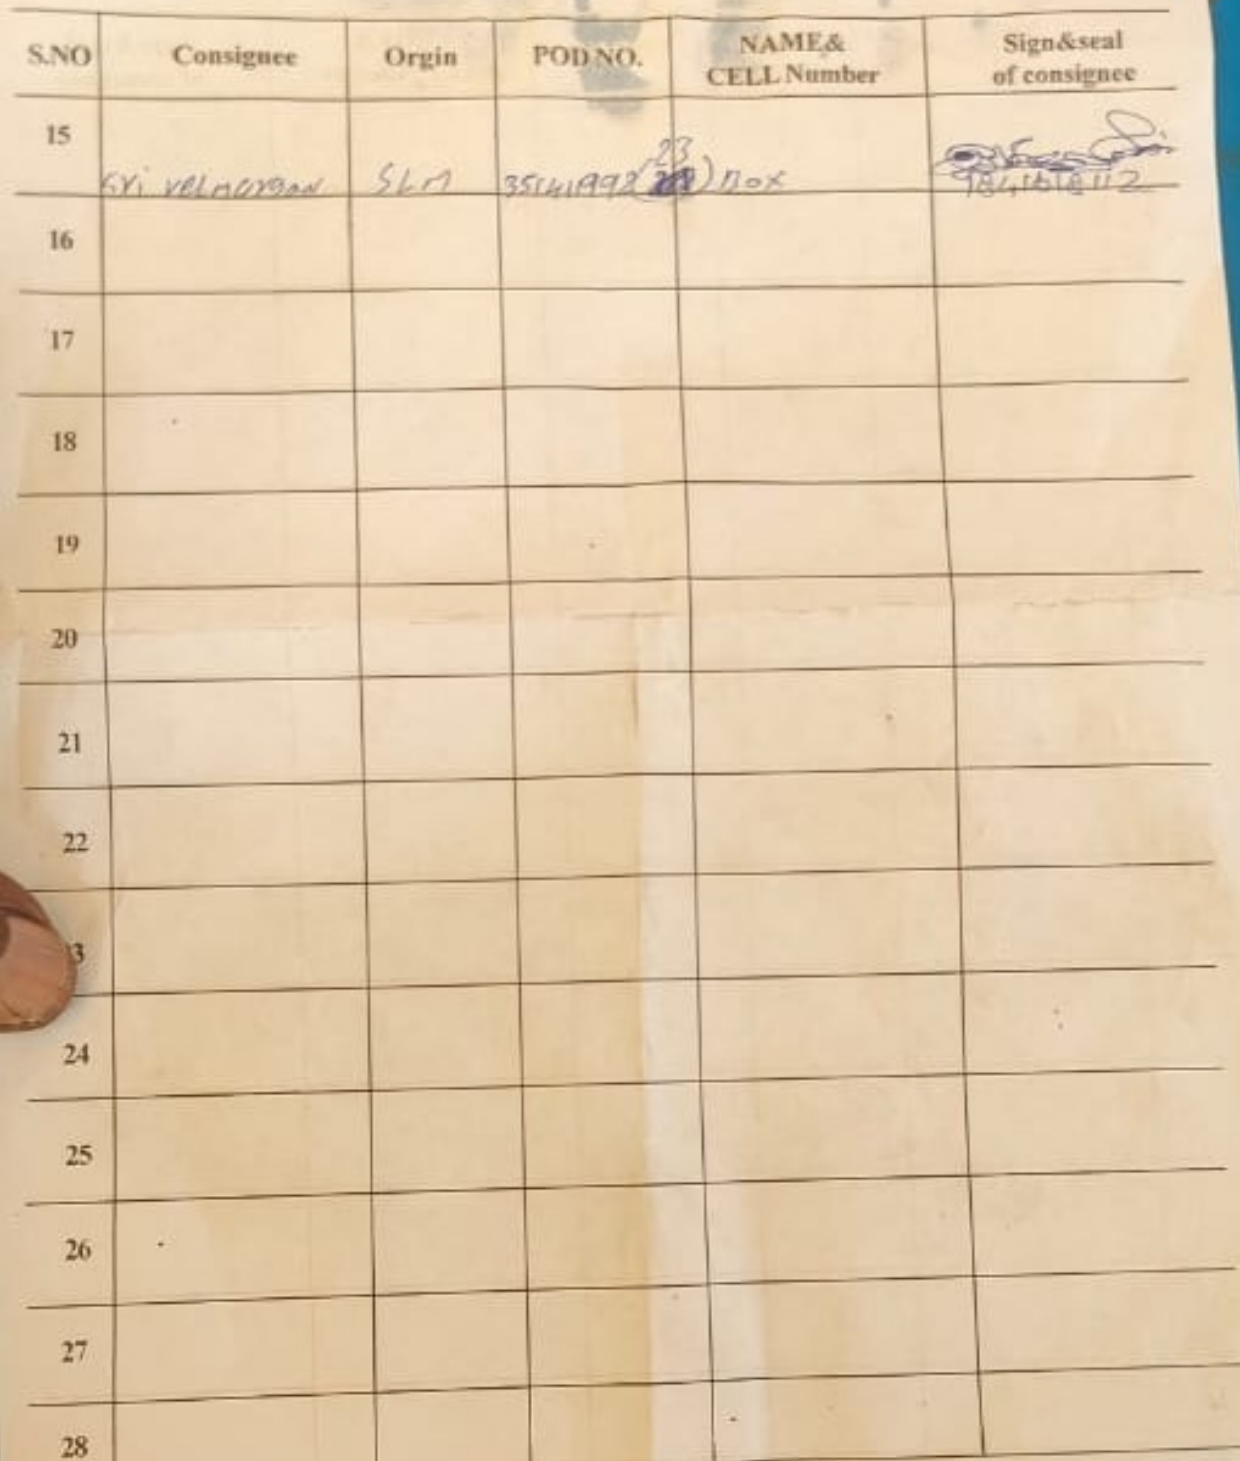 S.NO Consignee Orgin POD NO. NAME& CELL Number Sign&seal of consignee
15
23
Sri velmurgan SLM 35141992 ( ) Box
9841618112
16
17
18
19
20
21
22
3
24
25
26
27
28